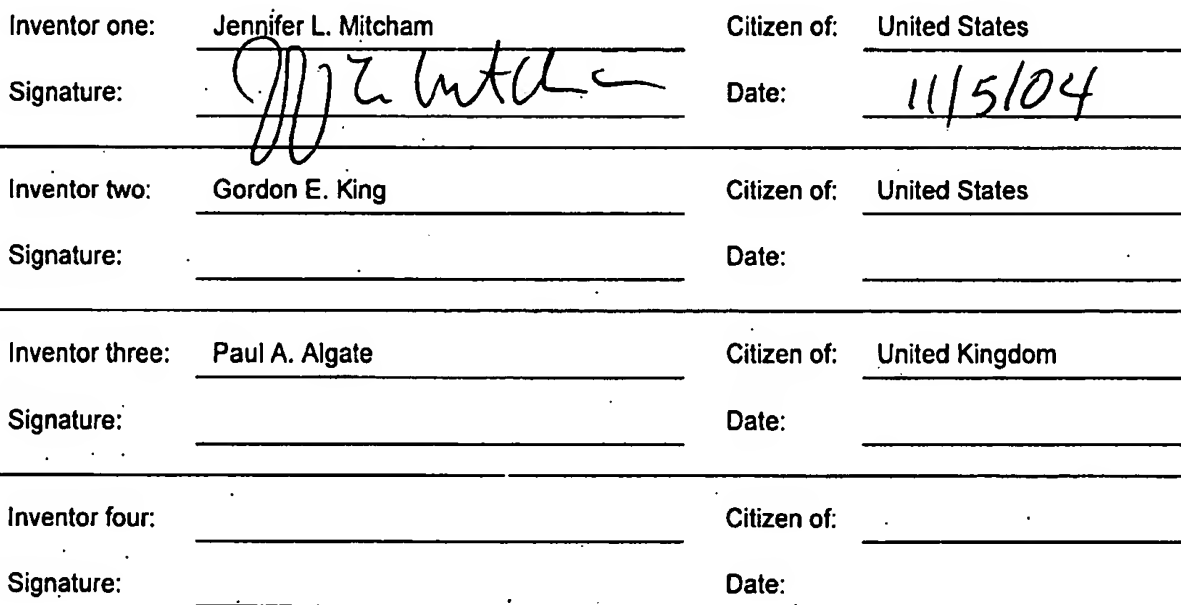 Inventor one: Jennifer L. Mitcham Citizen of: United States
Signature: Date: 11/5/04
Inventor two: Gordon E. King Citizen of: United States
Signature: Date:
Inventor three: Paul A. Algate Citizen of: United Kingdom
Signature: Date:
Inventor four: Citizen of:
Signature: Date: